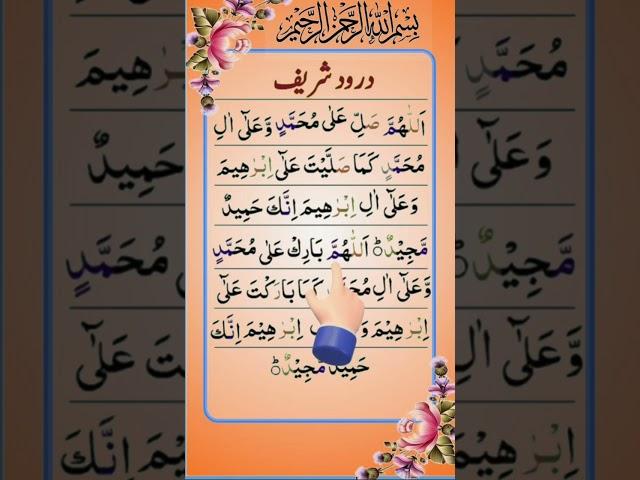 بِسْمِ اللهِ الرَّحْمٰنِ الرَّحِيْمِ
درود شریف
اَللّٰهُمَّ صَلِّ عَلٰى مُحَمَّدٍ وَّعَلٰٓى اٰلِ
مُحَمَّدٍ كَمَا صَلَّيْتَ عَلٰٓى اِبْرٰهِيْمَ
وَعَلٰٓى اٰلِ اِبْرٰهِيْمَ اِنَّكَ حَمِيْدٌ
مَّجِيْدٌ ؕ اَللّٰهُمَّ بَارِكْ عَلٰى مُحَمَّدٍ
وَّعَلٰٓى اٰلِ مُحَمَّدٍ كَمَا بَارَكْتَ عَلٰٓى
اِبْرٰهِيْمَ اِبْرٰهِيْمَ اِنَّكَ
حَمِيْدٌ مَّجِيْدٌ ؕ